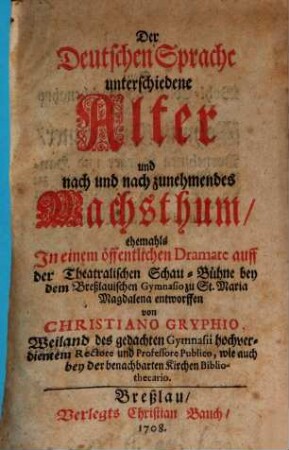 Der
Deutschen Sprache
unterschiedene
Alter
und
nach und nach zunehmendes
Wachsthum/
ehemahls
In einem öffentlichen Dramate auff
der Theatralischen Schau-Bühne bey
dem Breßlauischen Gymnasio zu St. Maria
Magdalena entworffen
von
CHRISTIANO GRYPHIO,
Weiland des gedachten Gymnasii hochver-
dientem Rectore und Professore Publico, wie auch
bey der benachbarten Kirchen Biblio-
thecario.
Breßlau/
Verlegts Christian Bauch/
1708.